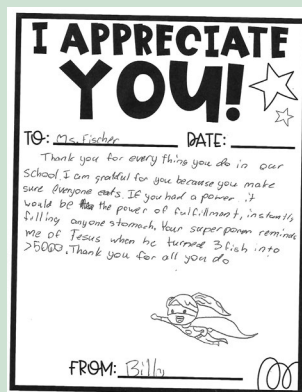 I APPRECIATE
YOU!
TO: Ms. Fischer DATE:
Thank you for every thing you do in our
school. I am grateful for you because you make
sure everyone eats. If you had a power it
would be the power of fulfillment, instantly
filling anyone stomach. Your superpower reminds
me of Jesus when he turned 3 fish into
>5000. Thank you for all you do
FROM: Billy